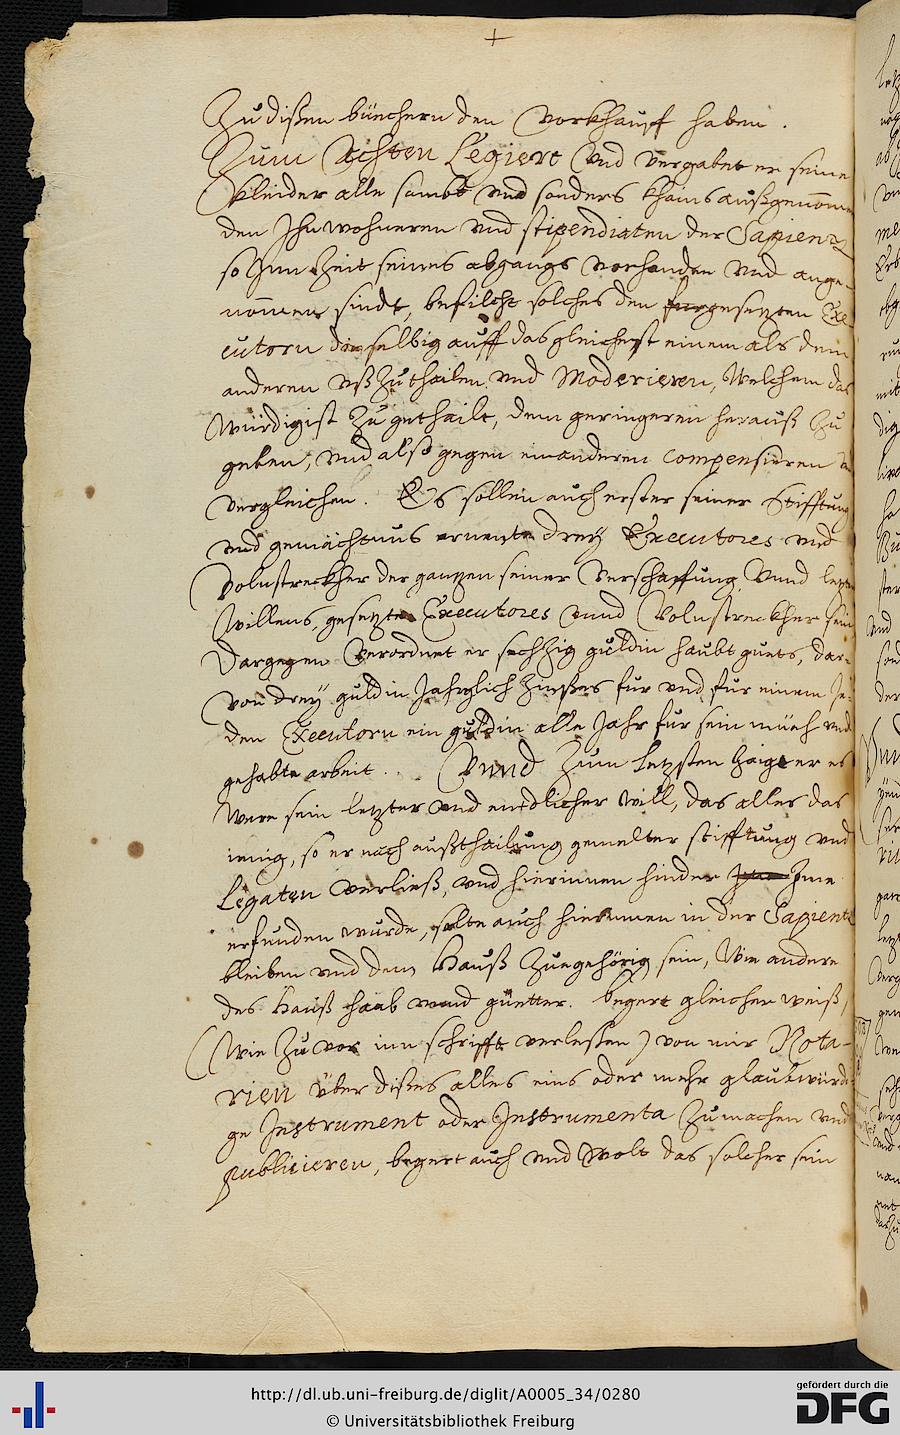 +
Zu dißen büechern den Vorkhauff haben.
Zum Achten Legiert Vnd vergabet er seine
kleider alle sambt vnd sonders khains außgenomme
den Inwohneren vnd stipendiaten der Sapientz
so Zur Zeit seines abgangs vorhanden vnd ange-
nommen sindt, befilcht solches den fürgesetzten Exe-
cutorn dasselbig auff das gleichest einem als dem
anderen vßzutheilen vnd Moderieren, Welchem das
würdigist zugetheilt, dem geringeren herauß zu
geben, vnd also gegen einanderen compensieren
vergleichen. Es sollen auch erster seiner Stifftung
vnd gemächtnus ernente drey Executores vnd
volnstreckher der gantzen seiner verschaffung Vnnd letzte
Willens, gesetzte Executores vnnd Volnstreckher sein
Dargegen Verordnet er sechtzig guldin haubtguets, dar-
von drey guldin Jahrlich Zinßes fur vnd fur einem Je-
den Executorn ein guldin alle Jahr fur sein müeh vnd
gehabte arbeit. Vnnd Zum Letzsten Zaigt er es
Were sein letzter vnd endlicher will, das alles das
ienig, so er nach außtheilung gemelter stifftung vnd
Legaten verließ, vnd hierinnen hinder Ime
erfunden wurde, solte auch hierinnen in der Sapientz
bleiben vnd dem Hauß Zuegehörig sein, Wie andere
des Hauß haab vnnd güetter. begert gleicher weiß,
(Wie Zuvor inn schrifft verleßen) von mir Nota-
rien über dißes alles eins oder mehr glaubwürdi
ge Instrument oder Instrumenta Zumachen vnd
publicieren, begert auch vnd wolt das solcher sein
http://dl.ub.uni-freiburg.de/diglit/A0005_34/0280
© Universitätsbibliothek Freiburg
gefördert durch die
DFG